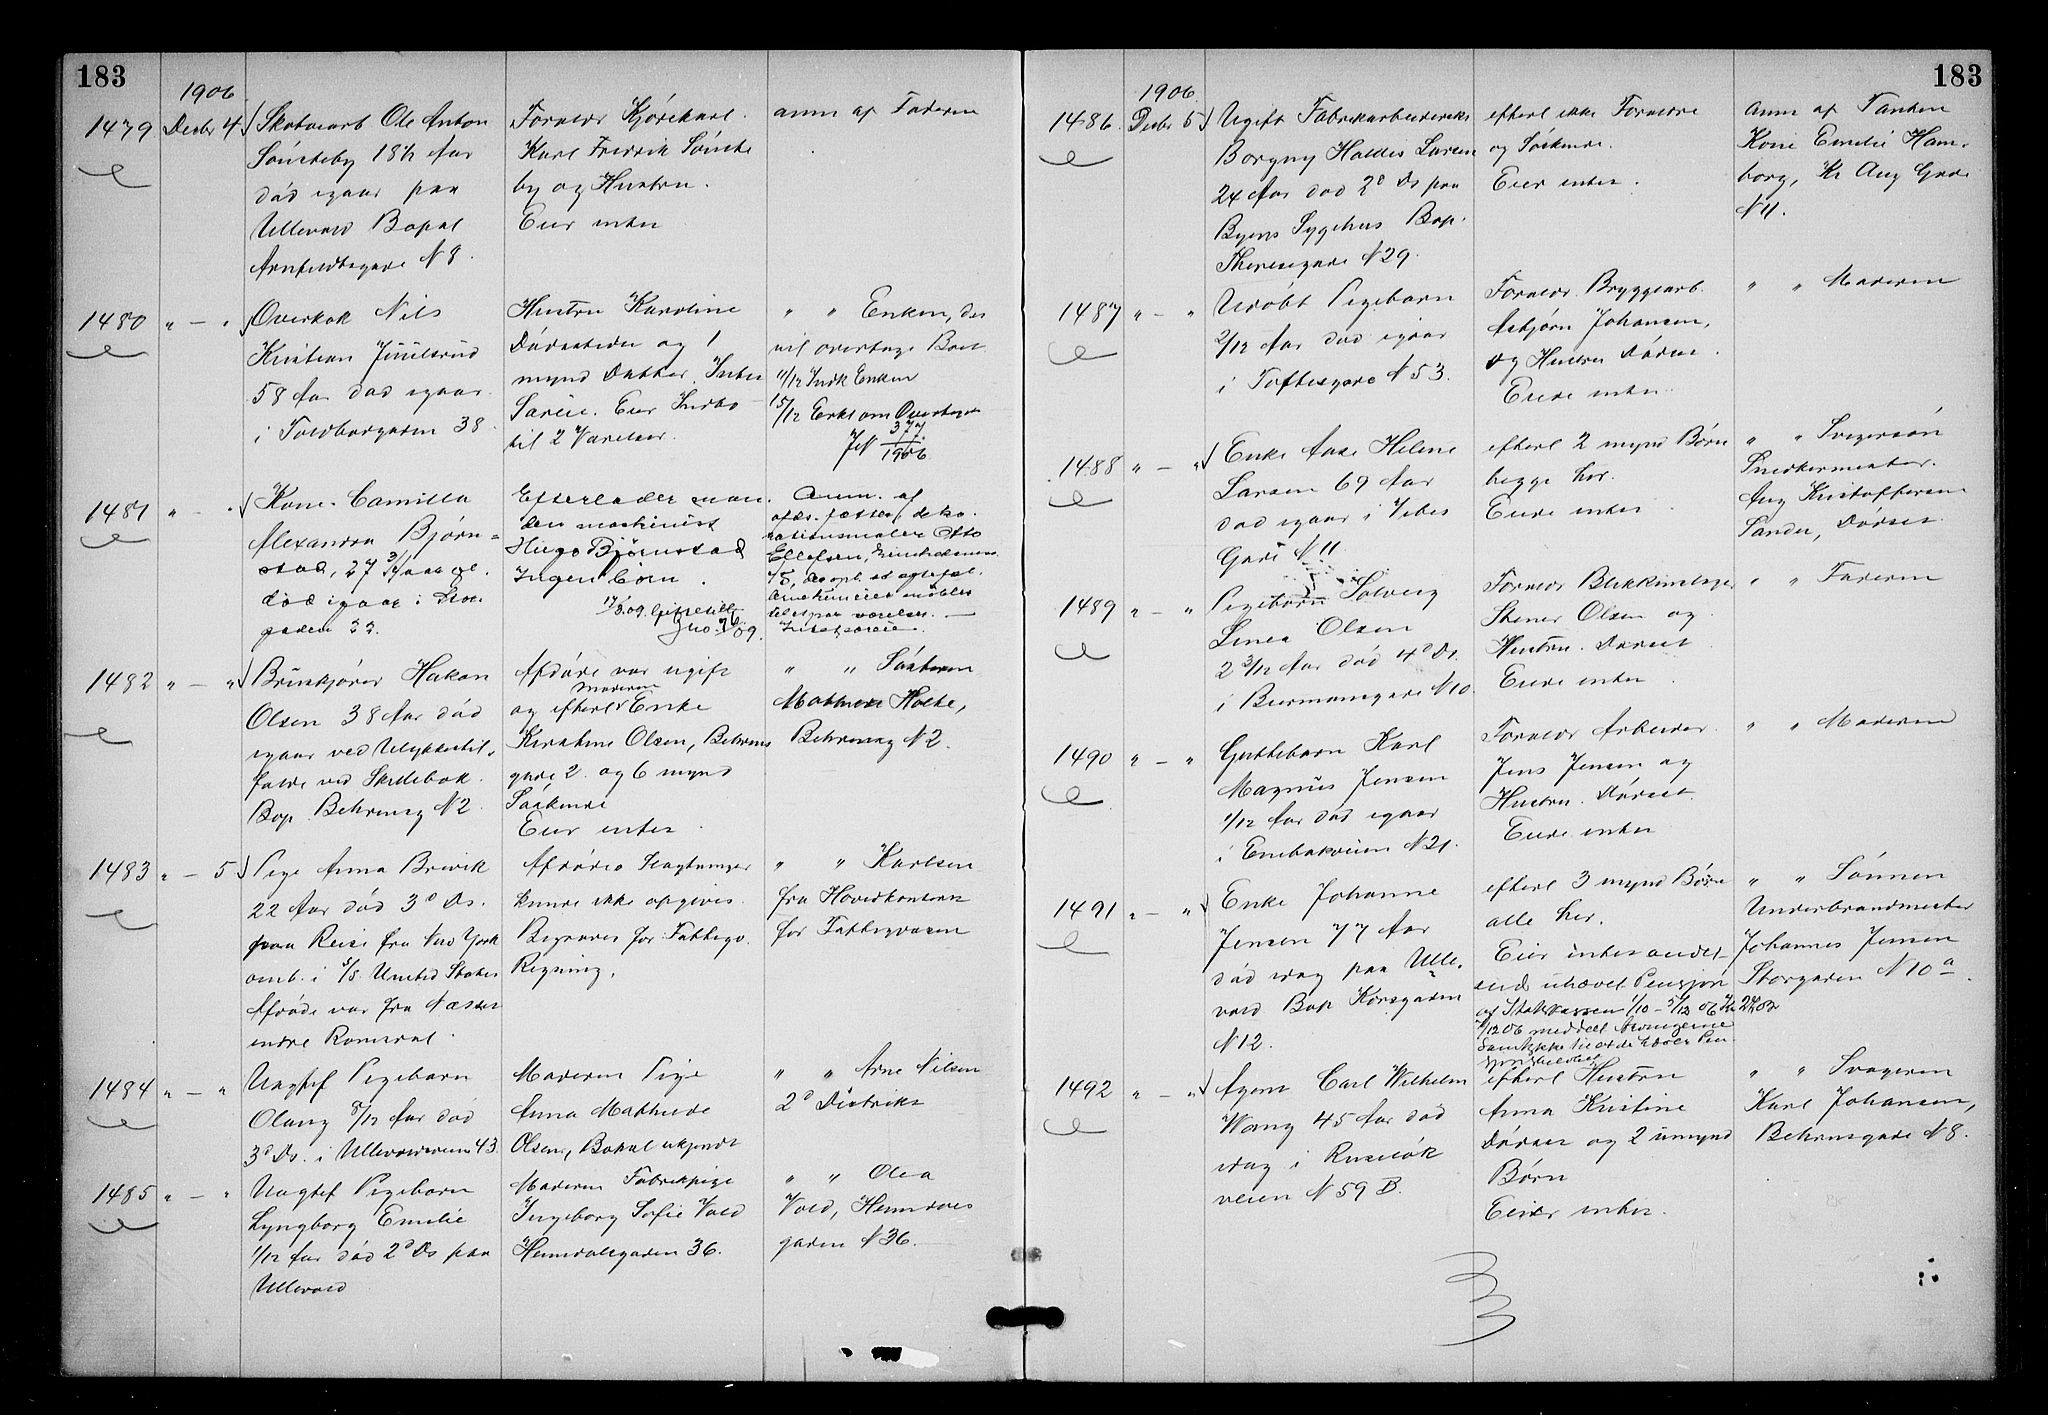 183
1906
1479 Desbr 4
Ole Anton
18½ Aar
død igaar paa
Ullevold Bopæl
N 8.
Forældr Kjørekarl
Karl Fredrik
by og Hustru.
Eier intet
anm af Faderen
1480 " — "
Overkok Nils
Kristian Juulsrud
58 Aar død igaar
i Toldbodgaden 38
Hustru Karoline
og 1
mynd Datter. Intet
Særeie. Eier Indbo
til 2 Værelser.
" " Enken, der
vil overtage Boet
11/12 Indk Enken
15/12 Erkl om Overtagelse
JN 377
1906
1481 " — "
Kone Camilla
Alexandra Bjørn=
stad, 27
død igaar i Stor
gaden 33.
Efterlader man
den maskinist
Hugo Bjørnstad
Ingen børn.
Anm. af
rationsmaler Otto
Ellefsen,
1482 " — "
Hakon
Olsen 38 Aar død
igaar ved Ulykkestil-
fælde ved Skullebak.
Bop. Behrensg N 2
Afdøde var ugift
Moderen
og efterl Enke
Olsen, Behrens
gade 2 og 6 mynd
Søskende
Eier intet
" " Søsteren
Mathea Holte,
Behrensg N 2.
1483 " — 5
Pige Anna Brevik
22 Aar død 3d Ds.
paa Reise fra New York
omb. i S/S United States
Afdøde var fra Næsset
indre Romsdal.
Afdødes Slægtninger
kunde ikke opgives
Begraves for Fattigv.
Regning.
" " Karlsen
fra Hovedkontoret
for Fattigvæsen
1484 " — "
Uægtef Pigebarn
Olaug 8/12 Aar død
3d Ds. i Ullevoldsveien 43
Moderen Pige
Anna Mathilde
Olsen, Bopæl ukjendt
" " Arne Nilsen
2d Distrikt
1485 " — "
Uægtef Pigebarn
Lyngborg Emilie
1/12 Aar død 2d Ds paa
Ullevold
Moderen Fabrikpige
Ingeborg Sofie Vold
Heimdalsgaden 36.
" " Olea
Vold, Heimdals
gaden N 36.
183
1906
1486 Desbr 5
Ugift Fabrikarbeiderske
Borgny Haldis Larsen
24 Aar død 2d Ds paa
Byens Sygehus Bop.
Theresegade N 29.
efterl ikke Forældre
og Søskende.
Eier intet.
anm af Tanten
Kone Emelie Ham-
borg, Kr Aug Gade
N 11.
1487 " — "
Udøbt Pigebarn
2/12 Aar død igaar
i Toftesgade N 53.
Forældr Bryggearb.
Asbjørn Johansen,
og Hustru Dødsst.
Eiede intet.
" " Moderen
1488 " — "
Enke Aase Helene
Larsen 69 Aar
død igaar i Vibes
Gade N 11
efterl 2 mynd Børn
begge her.
Eiede intet
" " Svigersøn
Snedkermester
Aug Kristoffersen
Sander, Dødsst.
1489 " — "
Pigebarn Solveig
Linea Olsen
2 3/12 Aar død 4d Ds.
i Biermannsgade N 10.
Forældr Blikkenslager
Stener Olsen og
Hustru. Dødsst
Eiede intet.
" " Faderen
1490 " — "
Guttebarn Karl
Magnus Jensen
1/12 Aar død igaar
i Enebakveien N 21.
Forældr Arbeider
Jens Jensen og
Hustru. Dødsst
Eiede intet
" " Moderen
1491 " — "
Enke Johanne
Jensen 77 Aar
død idag paa Ulle-
vold Bop Korsgaden
N 12.
efterl 3 mynd Børn
alle her.
Eier intet andet
end uhævet Pensjon
af Statskassen 1/10 - 5/12 06
" " Sønnen
Underbrandmester
Johannes Jensen
Storgaden N 10a
1492 " — "
Agent Carl Wilhelm
Wang 45 Aar død
idag i Ruseløk
veien N 59 B.
efterl Hustru
Anna Kristine
Dødsst og 2 umynd
Børn
Eier intet.
" " Svogeren
Karl Johansen,
Behrensgade N 8.